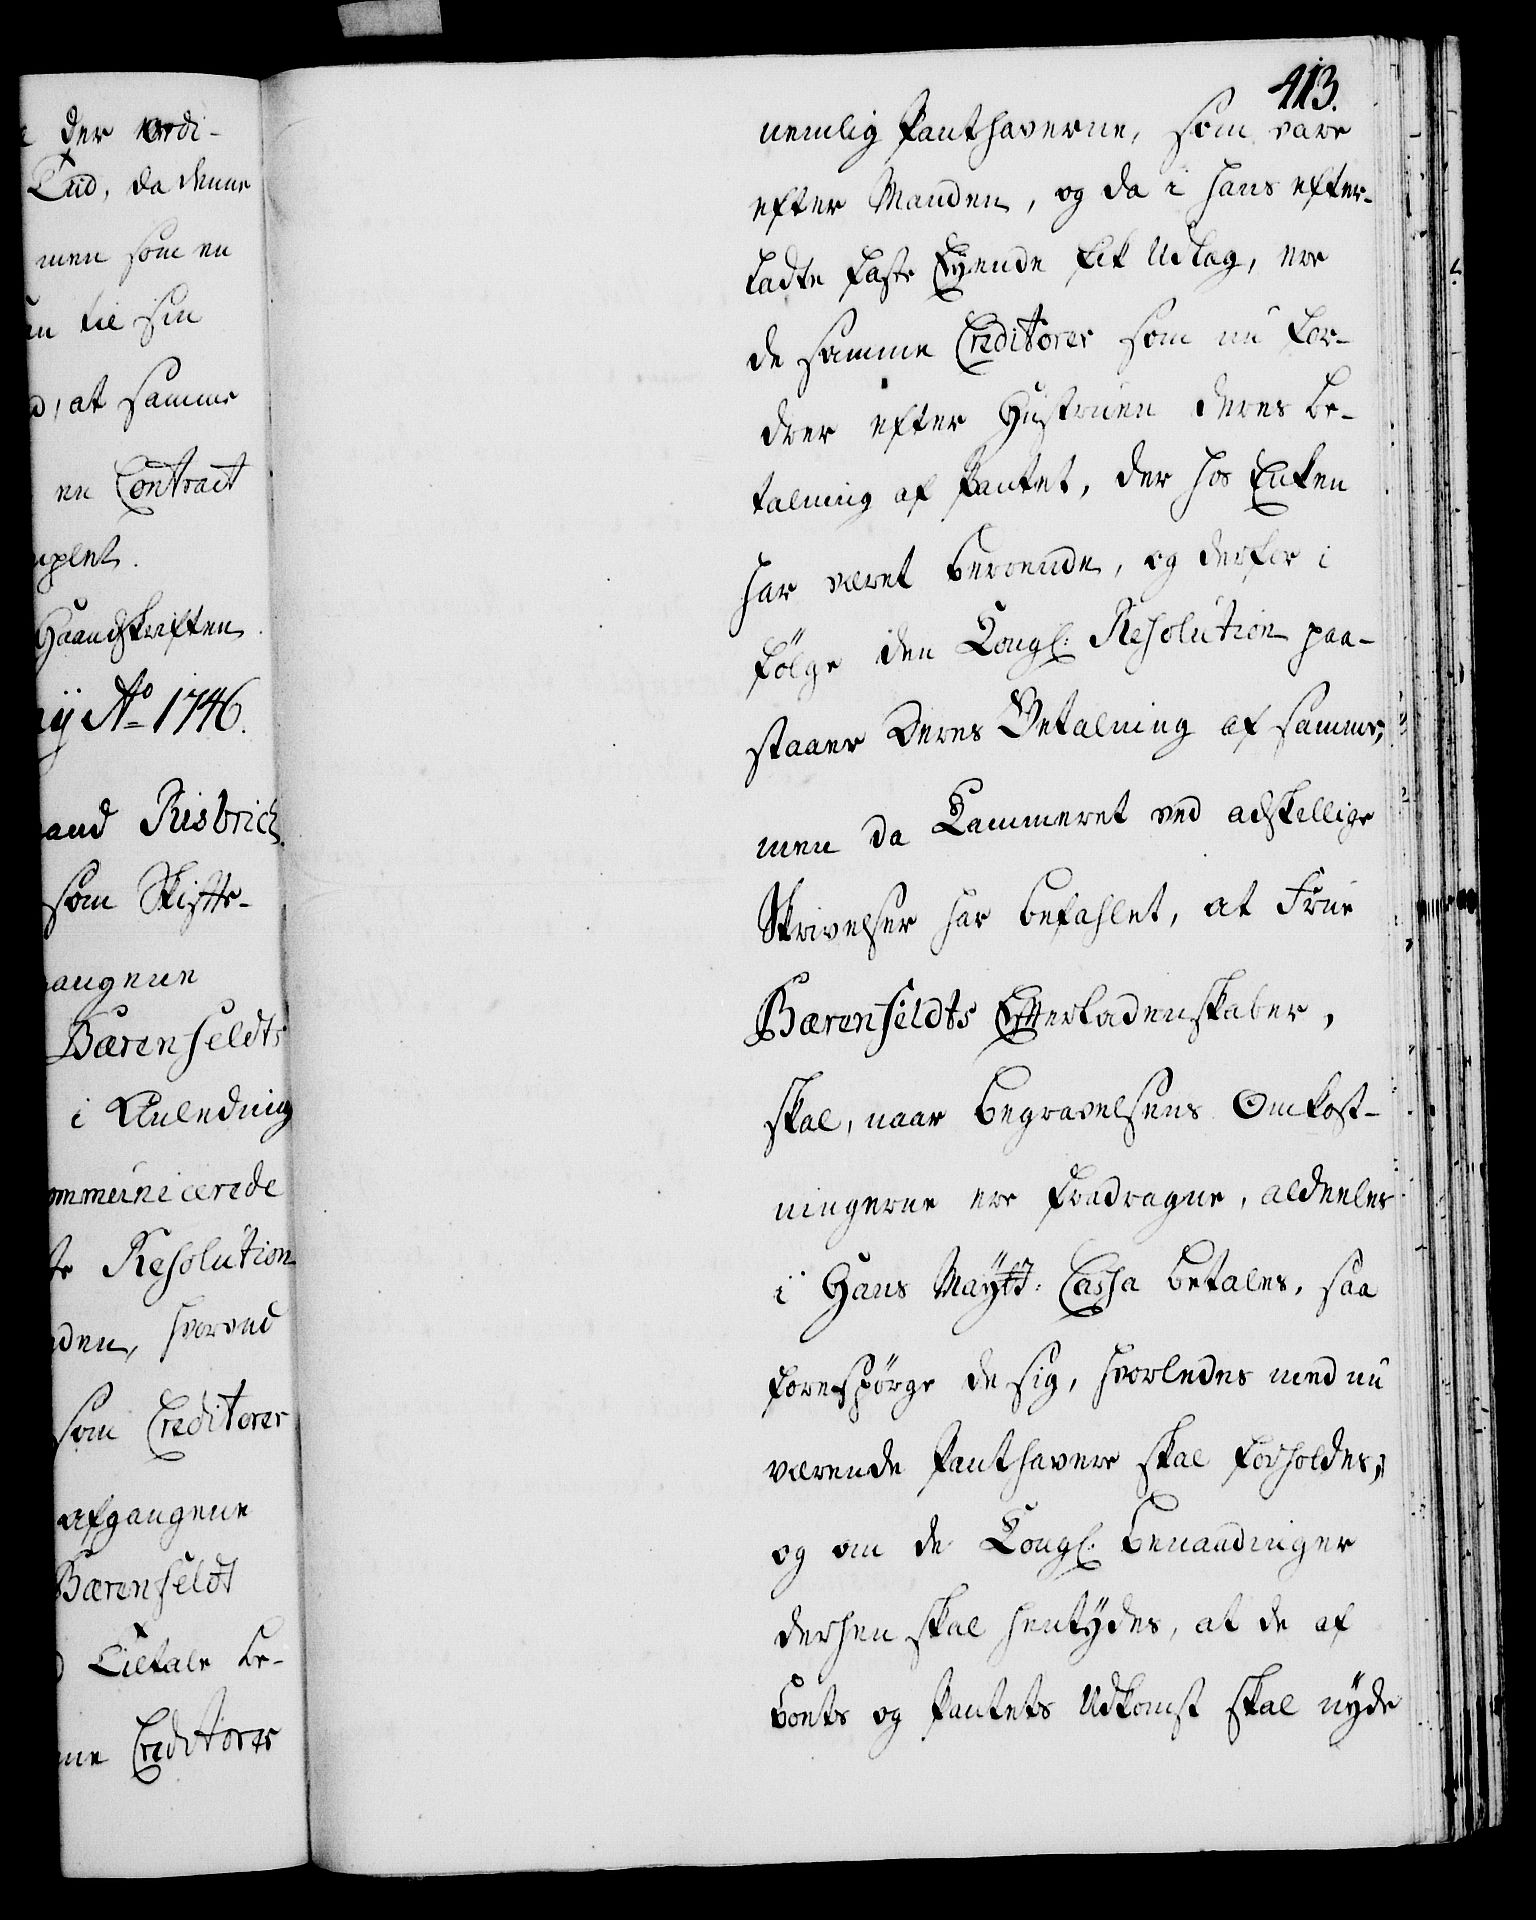 der ordi-
Tiid, da denne
men som en
til sin
at samme
en Contract
Haandskriften
Ao 1746.
Risbrich
som Skifte-
Bærenfeldts
i Anledning
Resolution
hvorved
som Creditorer
afgangene
Bærenfeldt
Tiltale be-
Creditorer
413.
nemlig Panthaverne, som vare
efter Manden, og da i hans efter-
ladte faste Eyende fik Udlag, ere
de samme Creditorer som nu for-
drer efter Hustruen deres be-
talning af Pantet, der hos Enken
har været beroende, og derfor i
følge den Kongl: Resolution paa-
staaer deres Betalning af samme,
men da Kammeret ved adskellige
Skrivelser har befahlet, at Frue
Bærenfeldts Efterladenskaber,
skal, naar begravelsens Omkost-
ningerne ere fradragne, aldeeles
i Hans Maytt: Cassa betales, saa
forespørge de sig, hvorledes med nu
værende Panthavere skal forholdes,
og om de Kongl: benaadinger
derhen skal hentydes, at de af
boets og Pantets Udkomst skal nyde